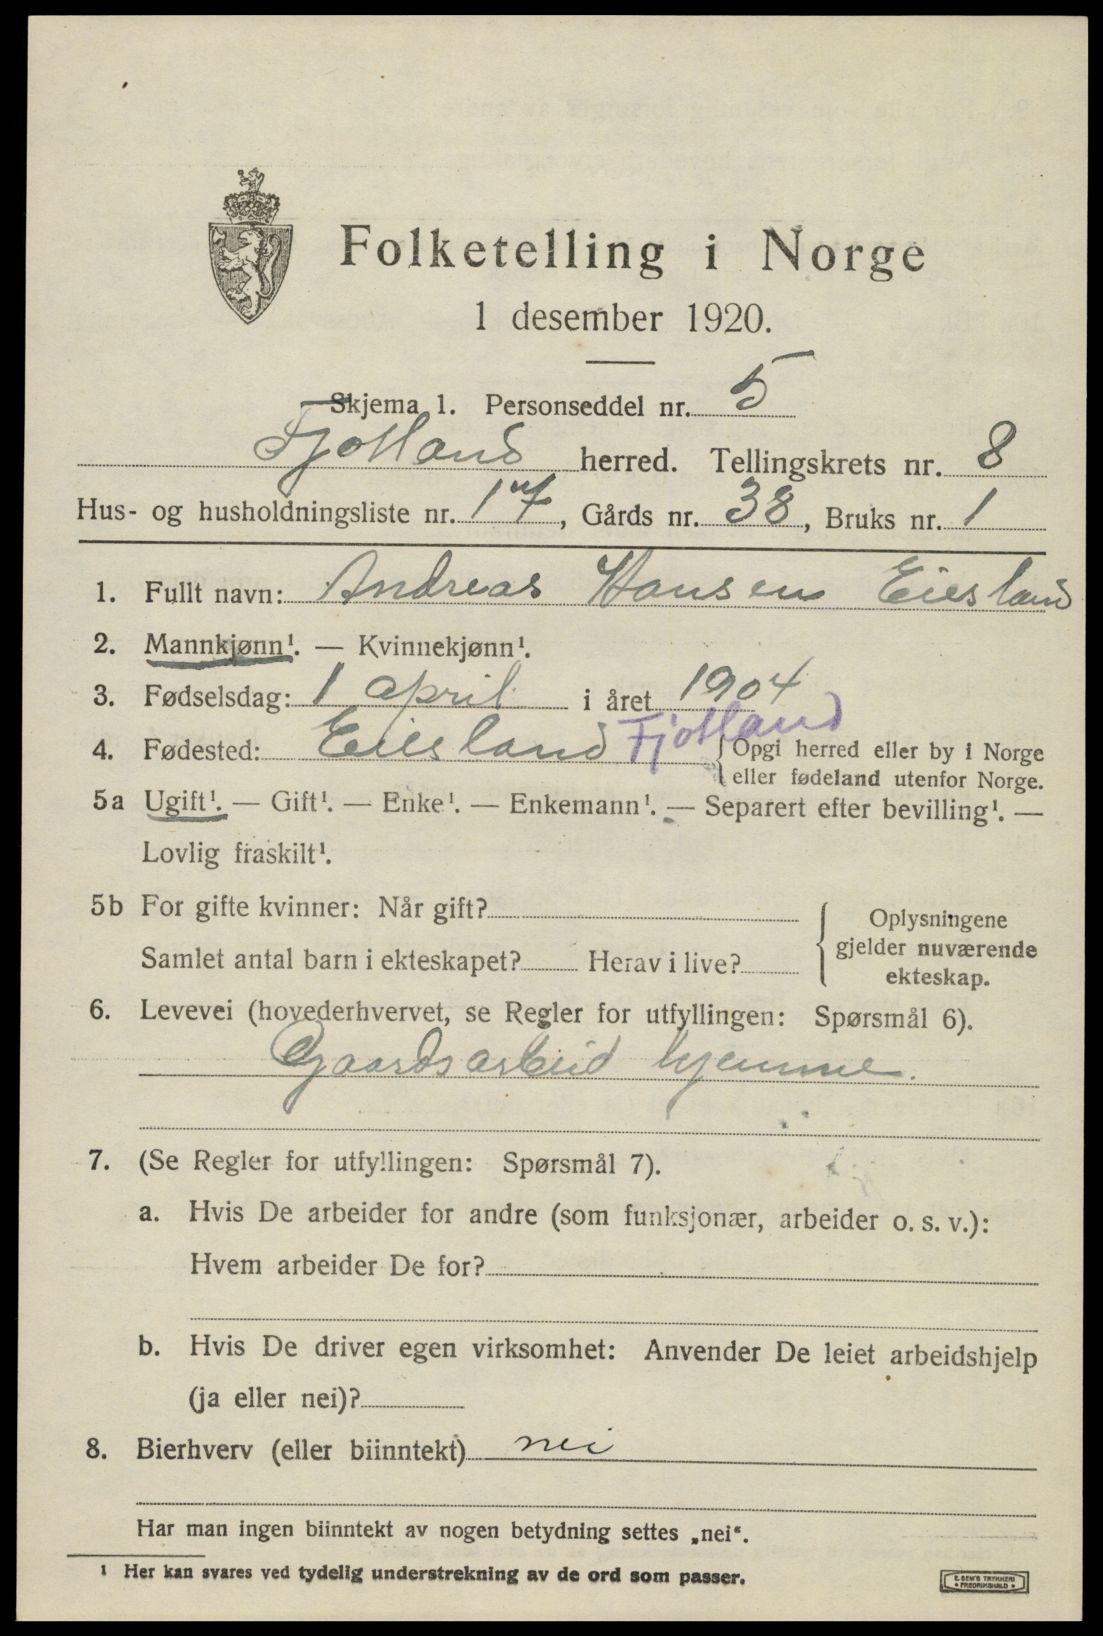 Folketelling i Norge
1 desember 1920.
Skjema 1. Personseddel nr. 5
Fjotland herred. Tellingskrets nr. 8
Hus- og husholdningsliste nr. 17, Gårds nr. 38, Bruks nr. 1
1. Fullt navn: Andreas Hansen Eiesland
2. Mannkjønn¹. — Kvinnekjønn¹.
3. Fødselsdag: 1 april i året 1904
4. Fødested: Eiesland Fjotland {Opgi herred eller by i Norge
eller fødeland utenfor Norge.
5a Ugift¹. — Gift¹. — Enke¹. — Enkemann¹. — Separert efter bevilling¹. —
Lovlig fraskilt¹.
5b For gifte kvinner: Når gift?
Samlet antal barn i ekteskapet? Herav i live?
{ Oplysningene
gjelder nuværende
ekteskap.
6. Levevei (hovederhvervet, se Regler for utfyllingen: Spørsmål 6).
Gaardsarbeid hjemme.
7. (Se Regler for utfyllingen: Spørsmål 7).
a. Hvis De arbeider for andre (som funksjonær, arbeider o. s. v.):
Hvem arbeider De for?
b. Hvis De driver egen virksomhet: Anvender De leiet arbeidshjelp
(ja eller nei)?
8. Bierhverv (eller biinntekt) nei
Har man ingen biinntekt av nogen betydning settes „nei“.
¹ Her kan svares ved tydelig understrekning av de ord som passer.
E. SEM'S TRYKKERI
• FREDRIKSHALD •